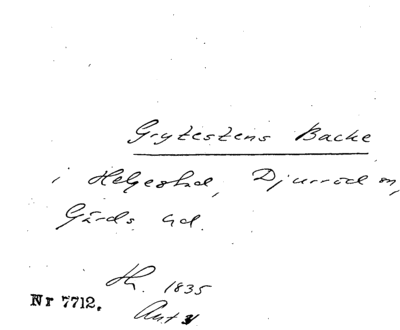 Grytestens Backe
i Helgestad, Djurröd sn,
Gärds hd.
Th. 1835
Nr 7712.
Ant